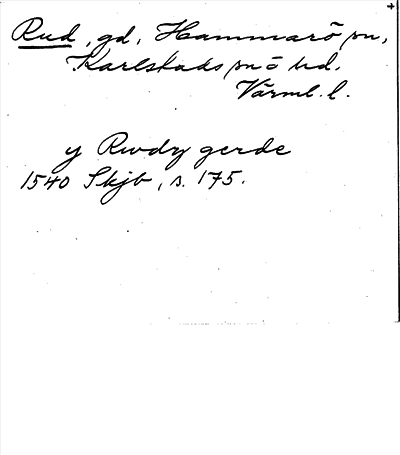 Rud, gd, Hammarö sn,
Karlstads sn o hd.
Värml. l.
y Rwdy gerde
1540 Skjb, s. 175.